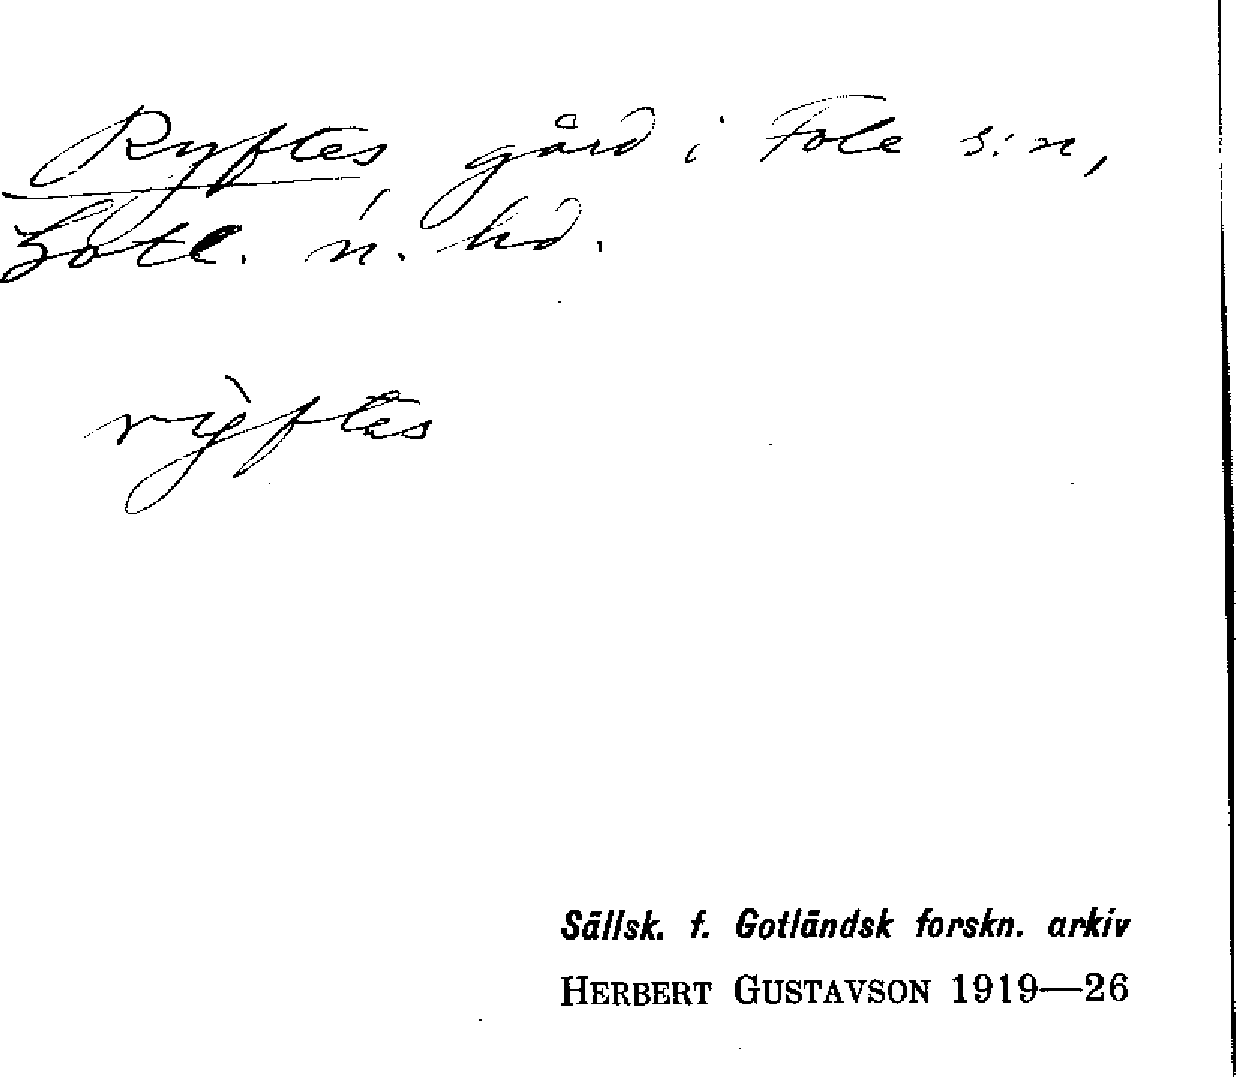 Ryftes gård i Fole s:n,
Gotl. n. hd.
rỳftes
Sällsk. f. Gotländsk forskn. arkiv
HERBERT GUSTAVSON 1919—26